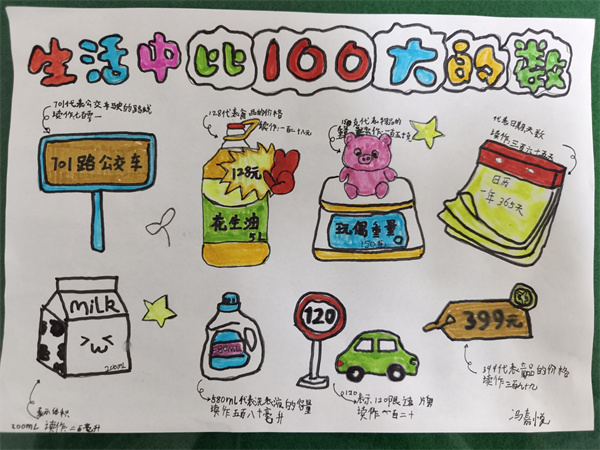 生活中比100大的数
701代表公交车驶的路线
读作七零一
701路公交车
128代表商品的价格
读作:一百二十八元
128元
花生油
5L
玩偶重量
150g
代表日期天数
读作:三百六十五天
日历
一年365天
MiLK
200mL
表示体积
200mL 读作:二百毫升
580mL代表洗衣液的容量
读作 五百八十毫升
120
120表示120限速牌
读作 一百二十
399元
399代表商品的价格
冯嘉悦